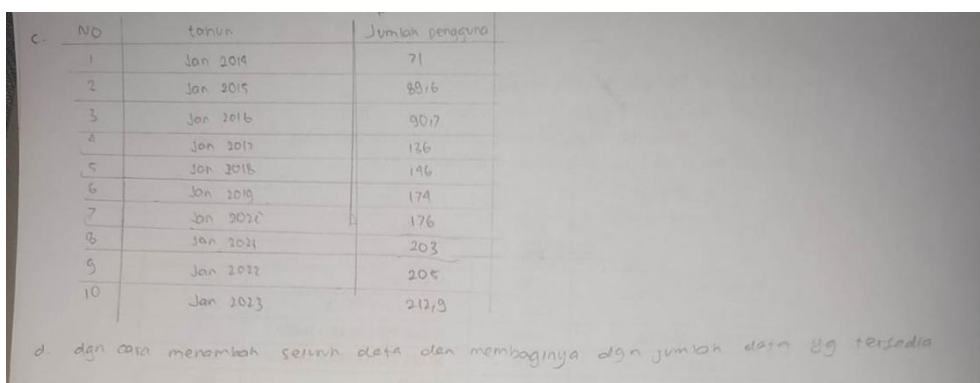 c. NO tahun Jumlah pengguna
1 Jan 2014 71
2 Jan 2015 88,6
3 Jan 2016 90,7
4 Jan 2017 136
5 Jan 2018 146
6 Jan 2019 174
7 Jan 2020 176
8 Jan 2021 203
9 Jan 2022 205
10 Jan 2023 212,9
d. dgn cara menambah seluruh data dan membaginya dgn jumlah data yg tersedia